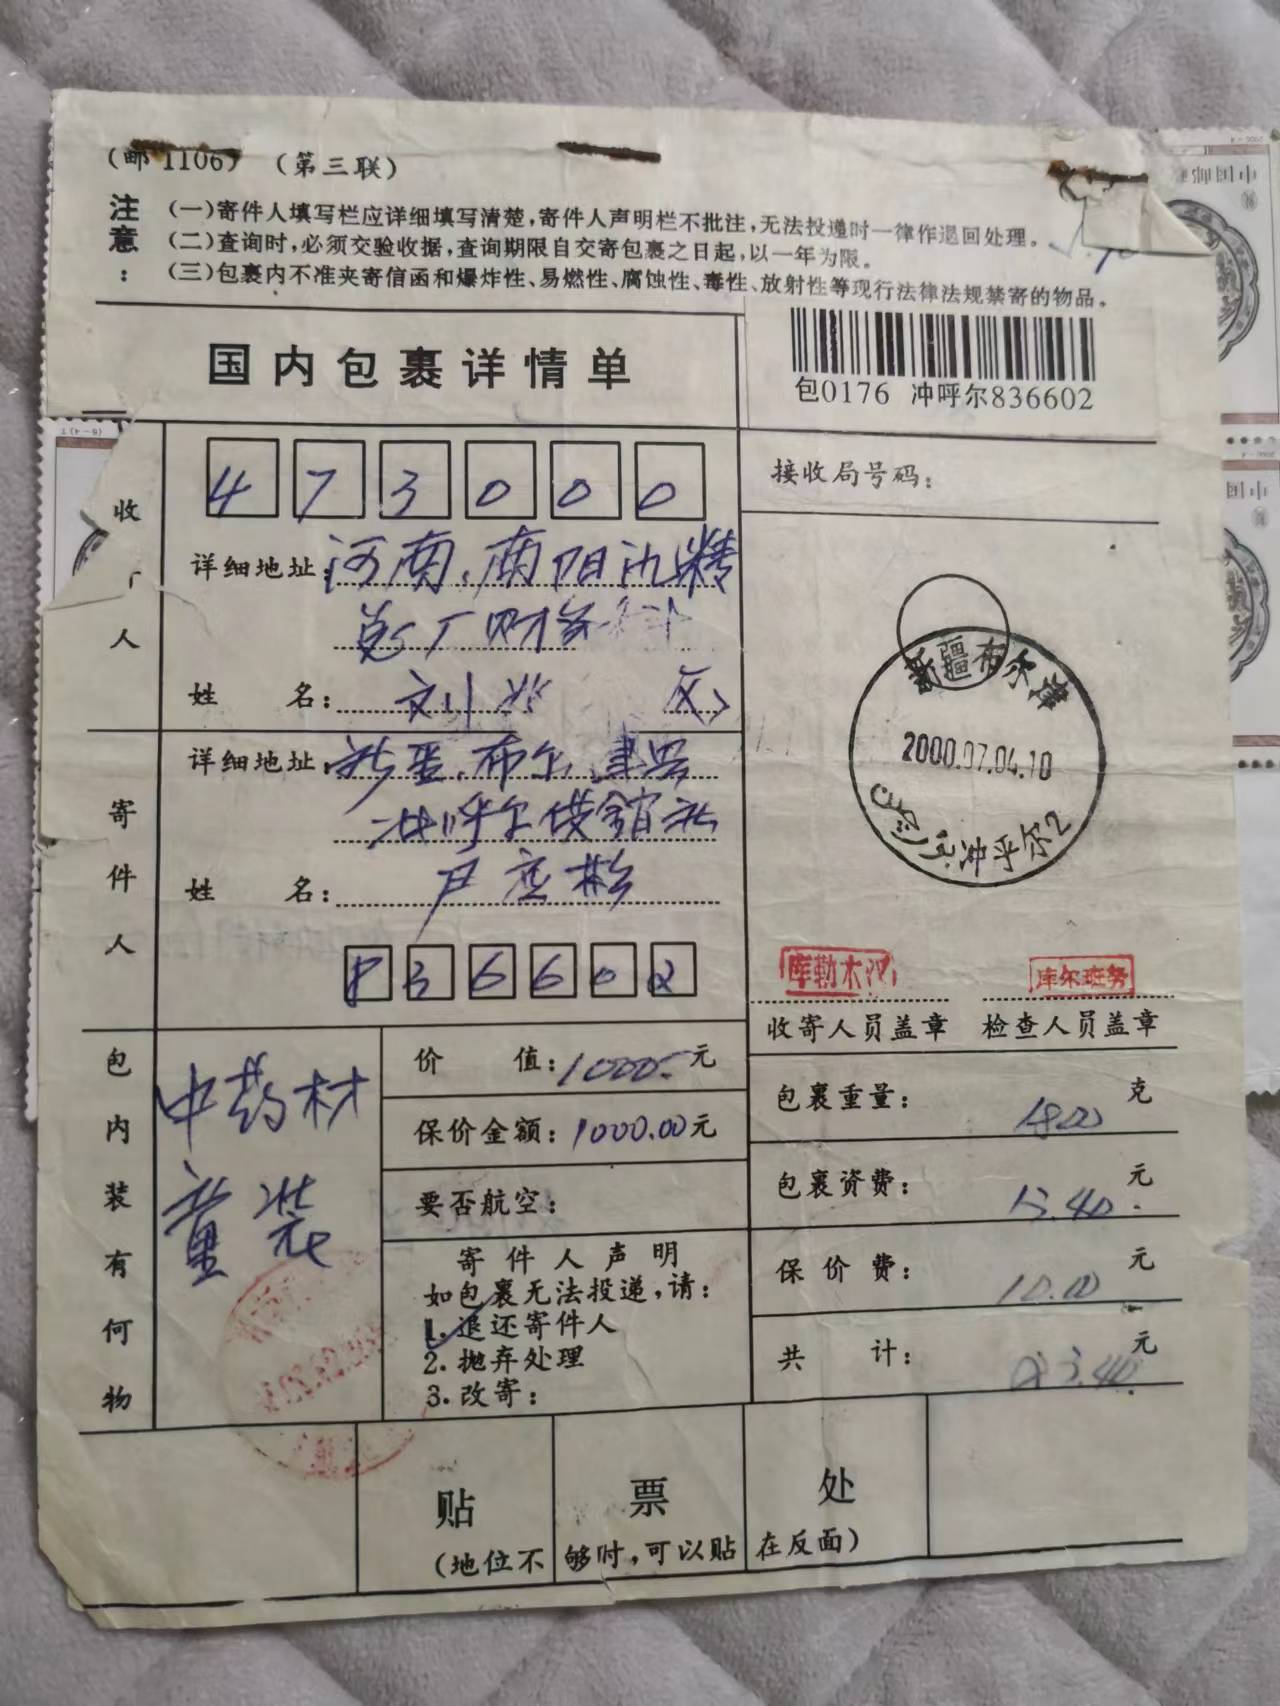 (邮 1106) (第三联)
注意:
(一)寄件人填写栏应详细填写清楚,寄件人声明栏不批注,无法投递时一律作退回处理。
(二)查询时,必须交验收据,查询期限自交寄包裹之日起,以一年为限。
(三)包裹内不准夹寄信函和爆炸性、易燃性、腐蚀性、毒性、放射性等现行法律法规禁寄的物品。
国内包裹详情单
包0176 冲呼尔836602
接收局号码:
收 人
473000
详细地址:河南,南阳
总厂财务科
姓 名:
寄件人
详细地址:新疆,布尔津县
冲呼尔供销社
姓 名:
836602
新疆布尔津
2000.07.04.10
冲乎尔2
库勒木汉
库尔班努
收寄人员盖章 检查人员盖章
包内装有何物
中药材
童装
价 值:1000.元
保价金额:1000.00元
要否航空:
寄件人声明
如包裹无法投递,请:
1.退还寄件人
2.抛弃处理
3.改寄:
包裹重量: 克
包裹资费:13.40元
保价费:10.00元
共 计:23.40元
贴 票 处
(地位不够时,可以贴在反面)
中国邮